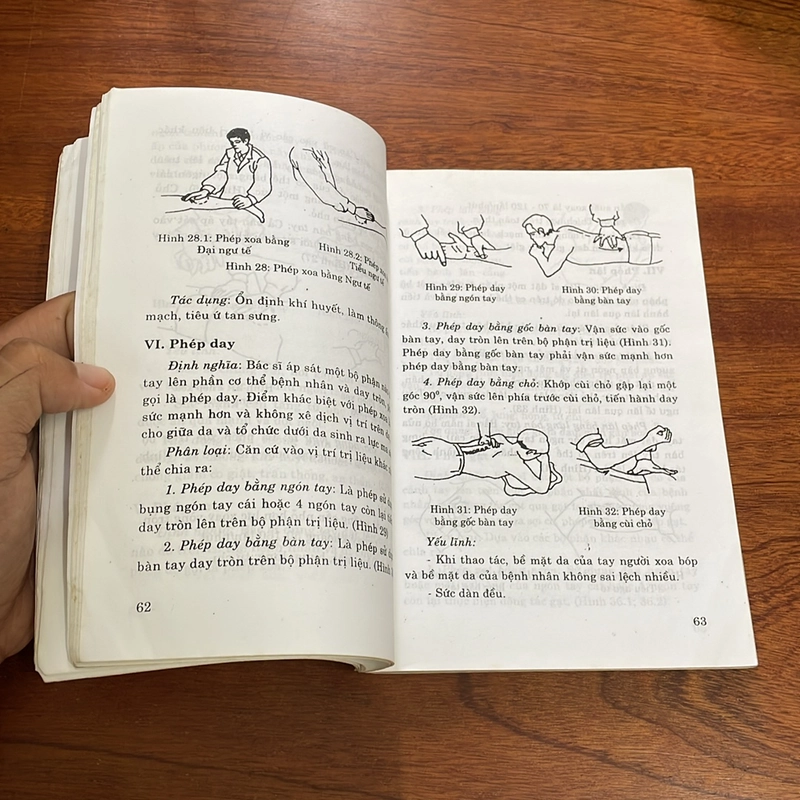 Hình 28.1: Phép xoa bằng
Đại ngư tế
Hình 28.2: Phép xoa
Tiểu ngư tế
Hình 28: Phép xoa bằng Ngư tế
Tác dụng: Ổn định khí huyết, làm thông
mạch, tiêu ứ tan sưng.
VI. Phép day
Định nghĩa: Bác sĩ áp sát một bộ phận
tay lên phần cơ thể bệnh nhân và day tròn,
gọi là phép day. Điểm khác biệt với phép xoa
sức mạnh hơn và không xê dịch vị trí trên
cho giữa da và tổ chức dưới da sinh ra lực
Phân loại: Căn cứ vào vị trí trị liệu khác
thể chia ra:
1. Phép day bằng ngón tay: Là phép sử
bụng ngón tay cái hoặc 4 ngón tay còn lại
day tròn lên trên bộ phận trị liệu. (Hình 29)
2. Phép day bằng bàn tay: Là phép sử
bàn tay day tròn trên bộ phận trị liệu.
62
Hình 29: Phép day
bằng ngón tay
Hình 30: Phép day
bằng bàn tay
3. Phép day bằng gốc bàn tay: Vận sức vào gốc
bàn tay, day tròn lên trên bộ phận trị liệu (Hình 31).
Phép day bằng gốc bàn tay phải vận sức mạnh hơn
phép day bằng bàn tay.
4. Phép day bằng chỏ: Khớp cùi chỏ gập lại một
góc 90⁰, vận sức lên phía trước cùi chỏ, tiến hành day
tròn (Hình 32).
Hình 31: Phép day
bằng gốc bàn tay
Hình 32: Phép day
bằng cùi chỏ
Yếu lĩnh:
- Khi thao tác, bề mặt da của tay người xoa bóp
và bề mặt da của bệnh nhân không sai lệch nhiều.
- Sức dàn đều.
63